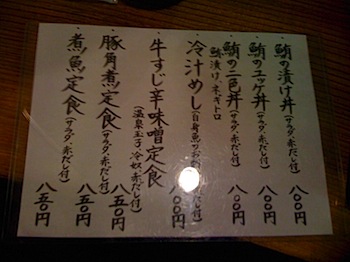 鮪の漬け丼(サラダ、赤だし付) 八〇〇円
鮪のユッケ丼(サラダ、赤だし付) 八〇〇円
鮪の二色丼(サラダ、赤だし付) 八〇〇円
鮪漬け、ネギトロ
冷汁めし(白身魚 赤だし付) 八〇〇円
牛すじ辛味噌定食
(温泉玉子、冷奴、赤だし付) 八五〇円
豚角煮定食(サラダ、赤だし付) 八五〇円
煮魚定食(サラダ、赤だし付) 八五〇円